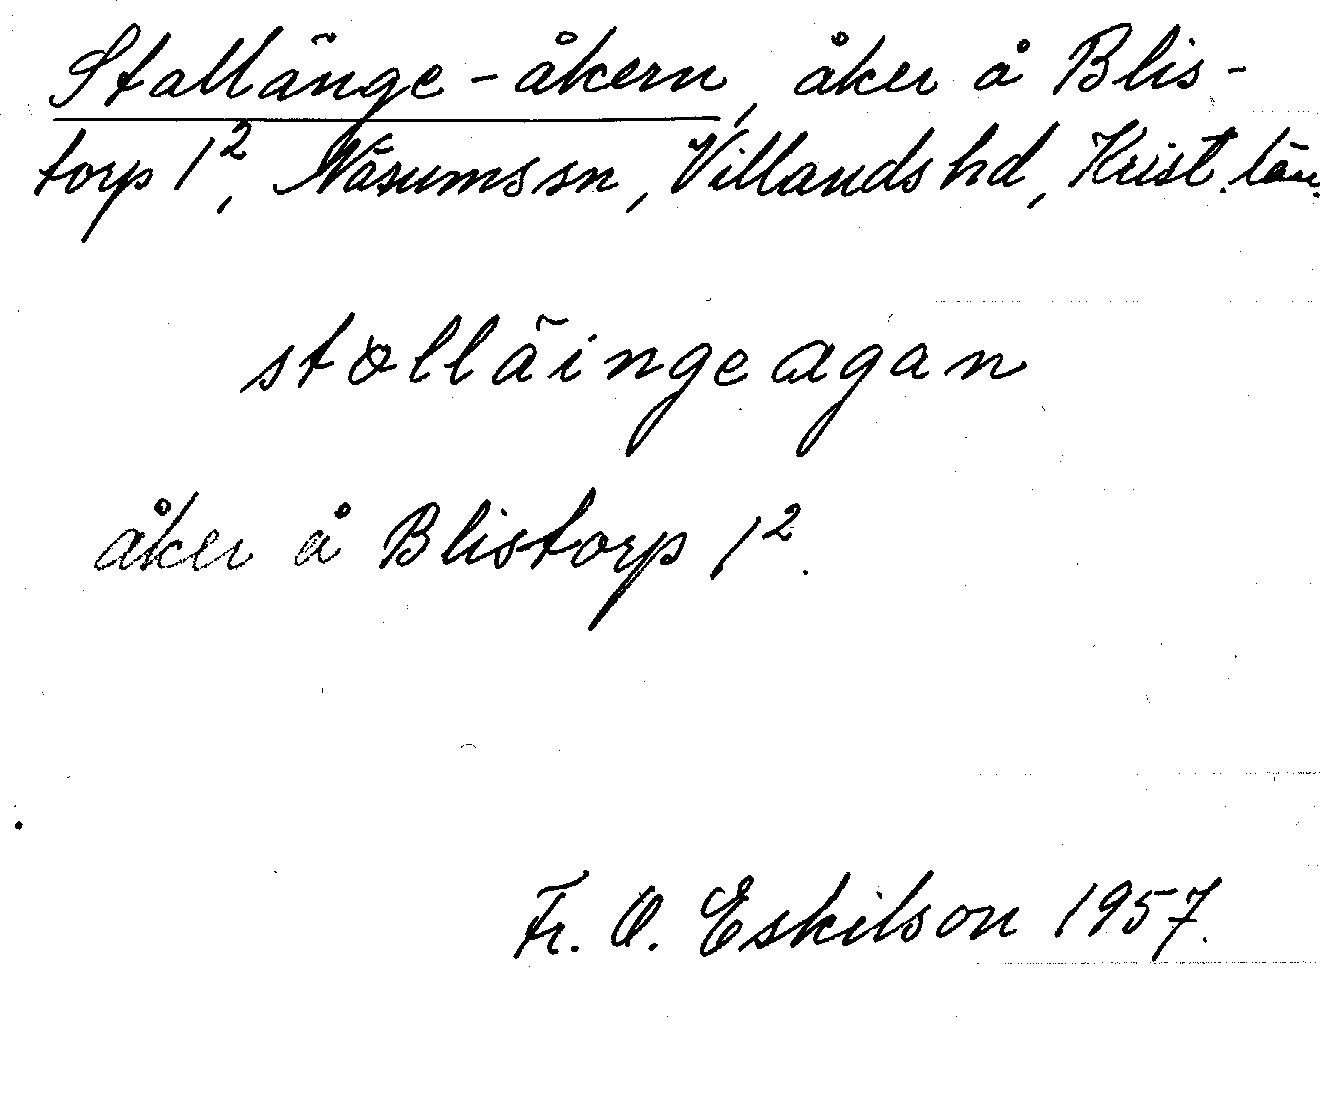 Stallänge-åkern, åker å Blis-
torp 1², Näsums sn, Villands hd, Krist. län.
stollãingeagan
åker å Blistorp 1².
Fr. O. Eskilson 1957.